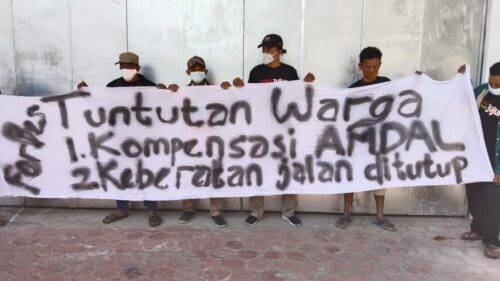 Tuntutan Warga
1. Kompensasi AMDAL
2. Keberatan jalan ditutup